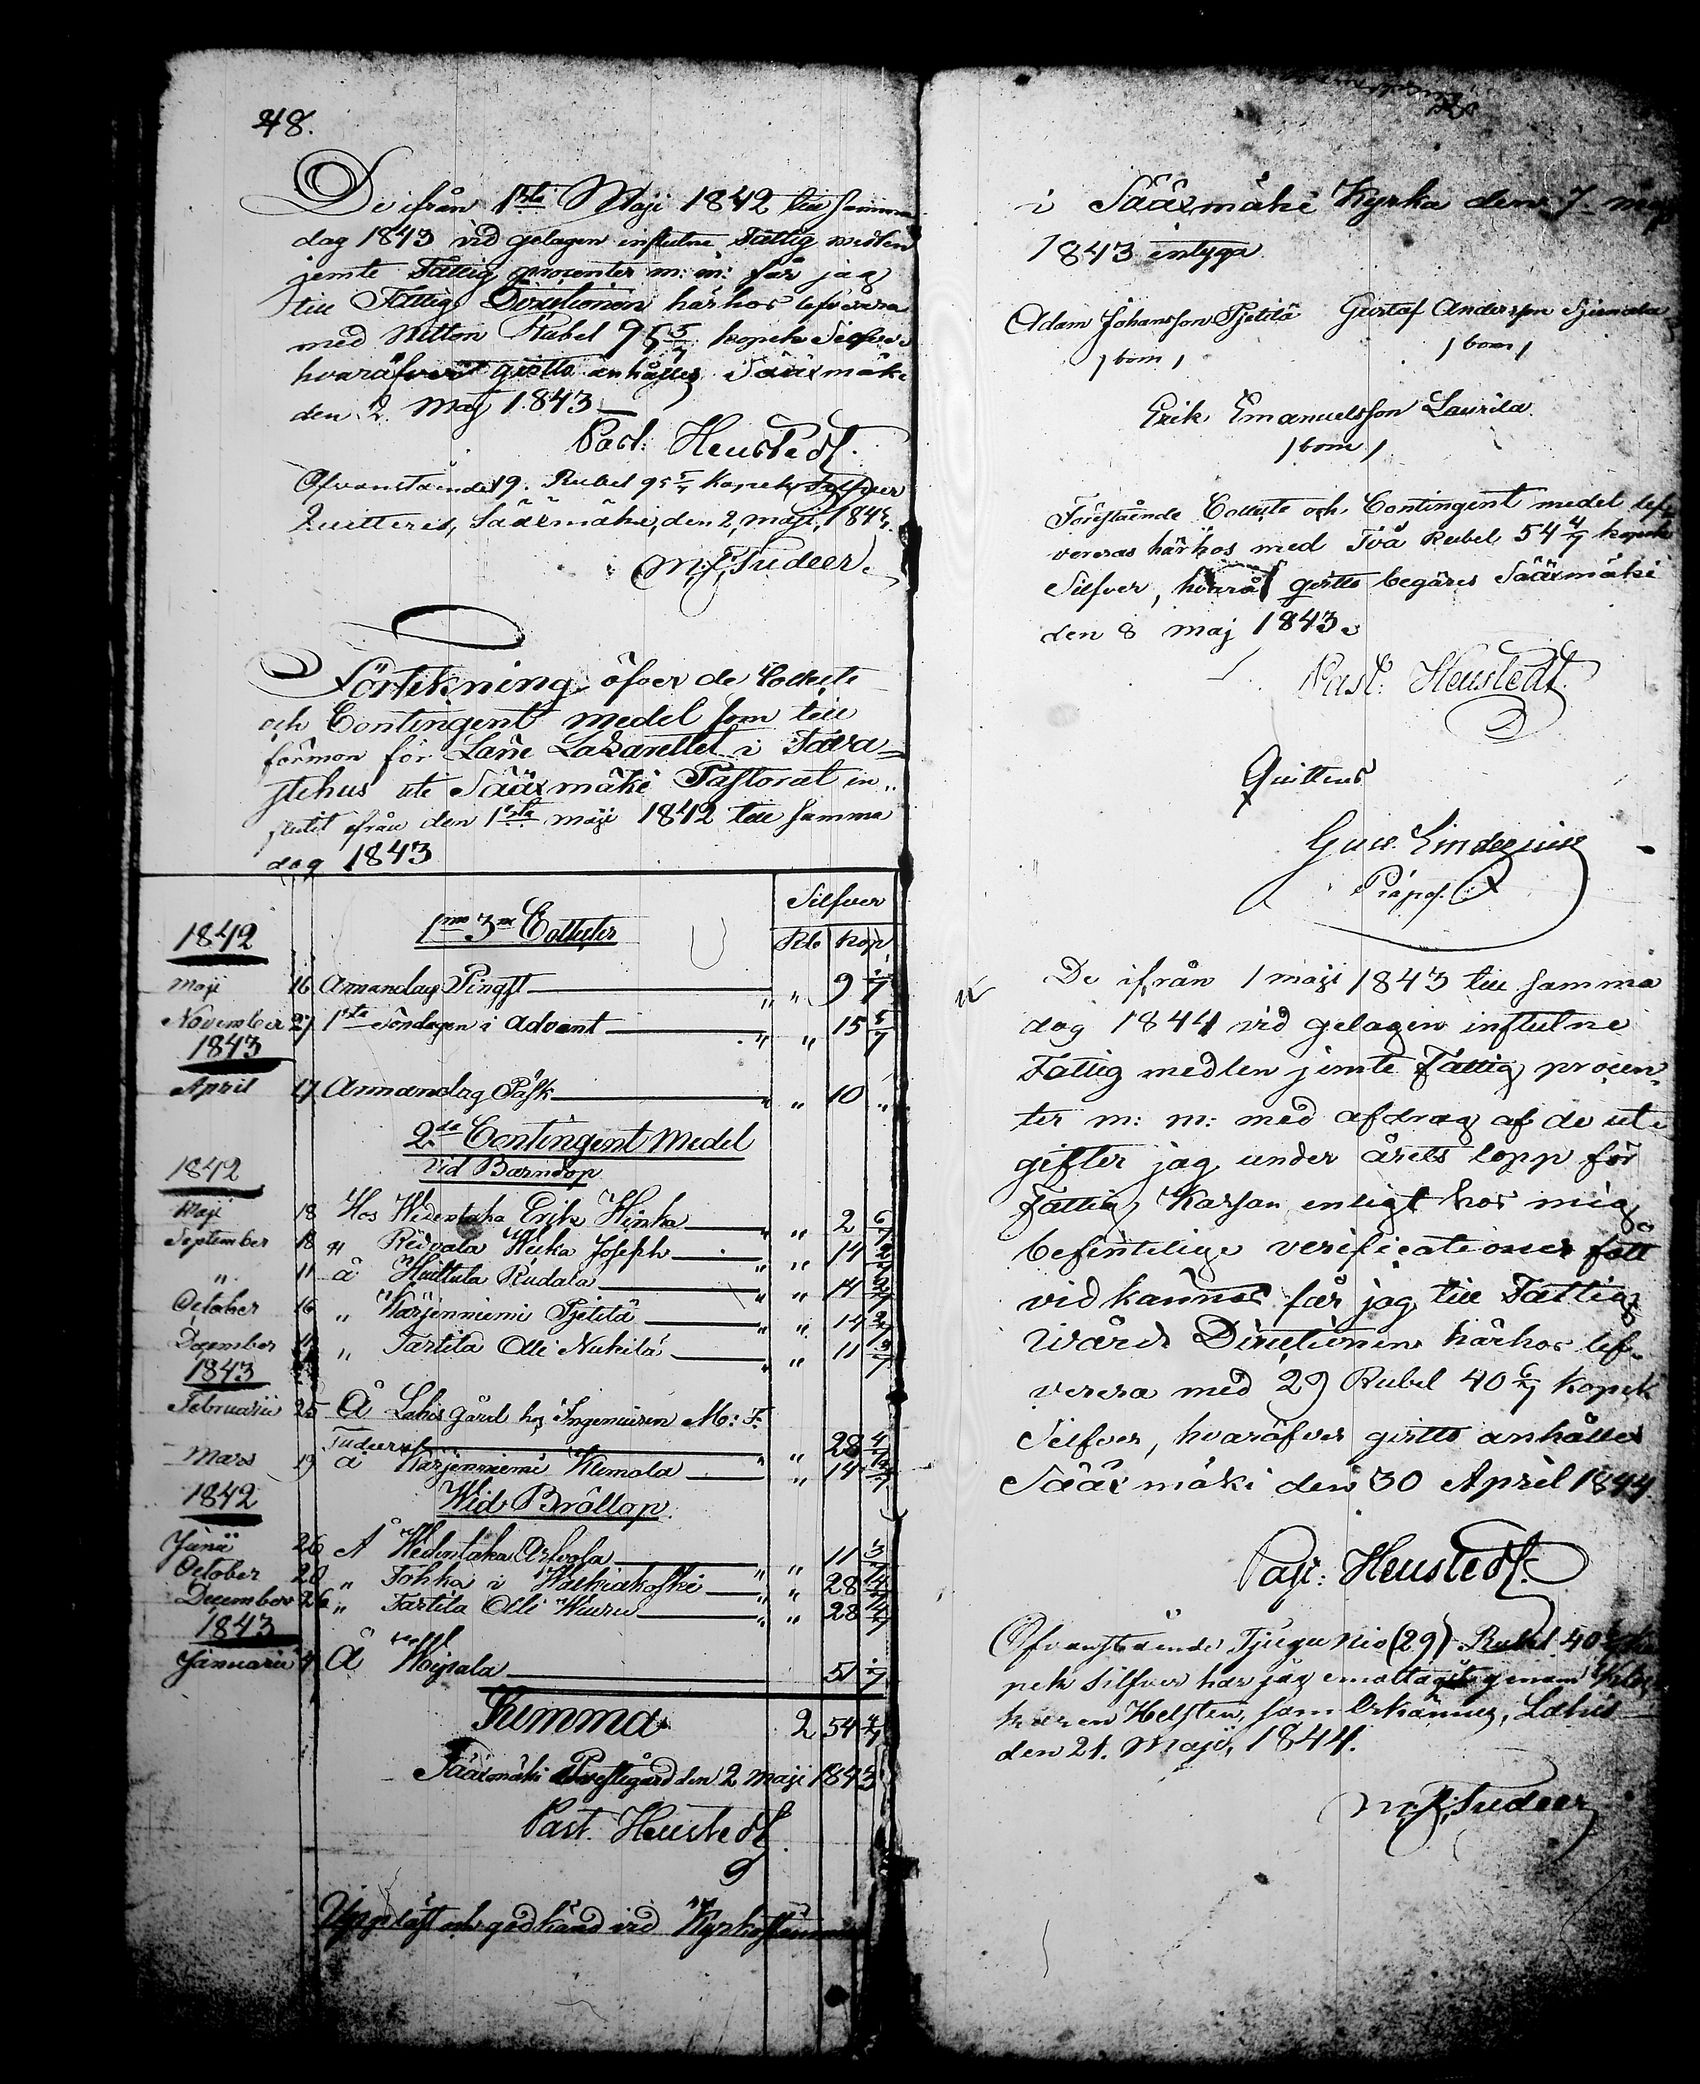 48.
De ifrån 1sta Maji 1842 till samma
dag 1843 vid gelagen influtne Fattig medlen
jemte Fattig procenter m: m: får jag
till Fattig Directionen härhos lefverera
med Nitton Rubel 95 5/7 kopek Silfver
hvaröfver qvitto anhålles Sääxmäki
den 2 Maj 1843
Past: Heustedt.
Ofvanstående 19. Rubel 95 5/7 Kopek Silfver
Quitteras, Sääxmäki, den 2, maji, 1843.
Tudeer.
Förtekning öfver de Collecte
och Contingent medel som till
förmon för Läne Lazarettet i Tava-
stehus uti Sääxmäki Pastorat in-
flutit ifrån den 1sta maji 1842 till samma
dag 1843
Silfver
1842 1mo 3ne Collecter Rub kop
Maji 16 Annandag Pingst " 9 1/7
November 27 1sta Söndagen i Advent " 15 5/7
1843
April 17 Annandag Påsk " 10 "
2do Contingent Medel
vid Barndop
1842
Maji 18 Hos Widentaka Erik Hinka " 2 6/7
September 18 Ridvala Heika Joseph " 14 2/7
" 11 å Huittula Rudala " 14 2/7
October 16 " Kärjenniemi Pjetilä " 14 2/7
December " Tarttila Olli Nukilä " 11 3/7
1843
Februarii 25 Å Lahis gård hos Ingenieuren M: F:
Tudeer " 28 4/7
Mars 19 å Kärjenniemi Klemola " 14 2/7
1842 Wid Bröllop.
Junii 26 Å Wedentaka Arfvola " 11 3/7
October 20 " Tohka i Walkiakoski " 28 4/7
December 26 " Tarttila Olli Wiuru " 28 4/7
1843
Januarii 4 Å Woipala 51
Summa 2 54 4/7
Sääxmäki Prestegård den 2 maji 1843
Past. Heustedt
Uppläst och godkänd vid Kyrkostämma
i Sääxmäki Kyrka den 7 maj
1843 intyga
Adam Johansson Pjetilä Gustaf Andersson
/bom/ /bom/
Erik Emanuelsson Laurila.
/bom/
Förestående Collecte och Contingent medel lef-
vereras härhos med Två Rubel 54 4/7 kopek
Silfver, hvarå qvitto begäres Sääxmäki
den 8 maj 1843.
Past: Heustedt.
Quitteras
De ifrån 1 maji 1843 till samma
dag 1844 vid gelagen influtne
Fattig medlen jemte Fattig procen-
ter m: m: med afdrag af de ut-
gifter jag under årets lopp för
Fattig Kassan enligt hos mig
befintelige verificationer fått
vidkännas får jag till Fattig
Wårds Directionen härhos lef-
verera med 29 Rubel 40 6/7 Kopek
Silfver, hvaröfver qvitto anhålles
Sääxmäki den 30 April 1844.
Past: Heustedt.
Ofvanstående Tjugu Nio (29) Rubel 40 6/7 ko-
pek Silfver har jag emottagit genom
Helsten, som erkännes, Lahis
den 21. Maji, 1844.
Tudeer